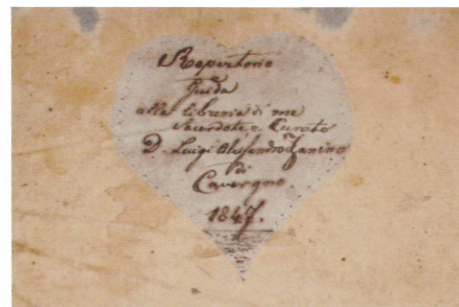 Repertorio
Guida
alla libreria di me
Sacerdote e Curato
D. Luigi Alessandro Zanino
di
Cavergno.
1847.